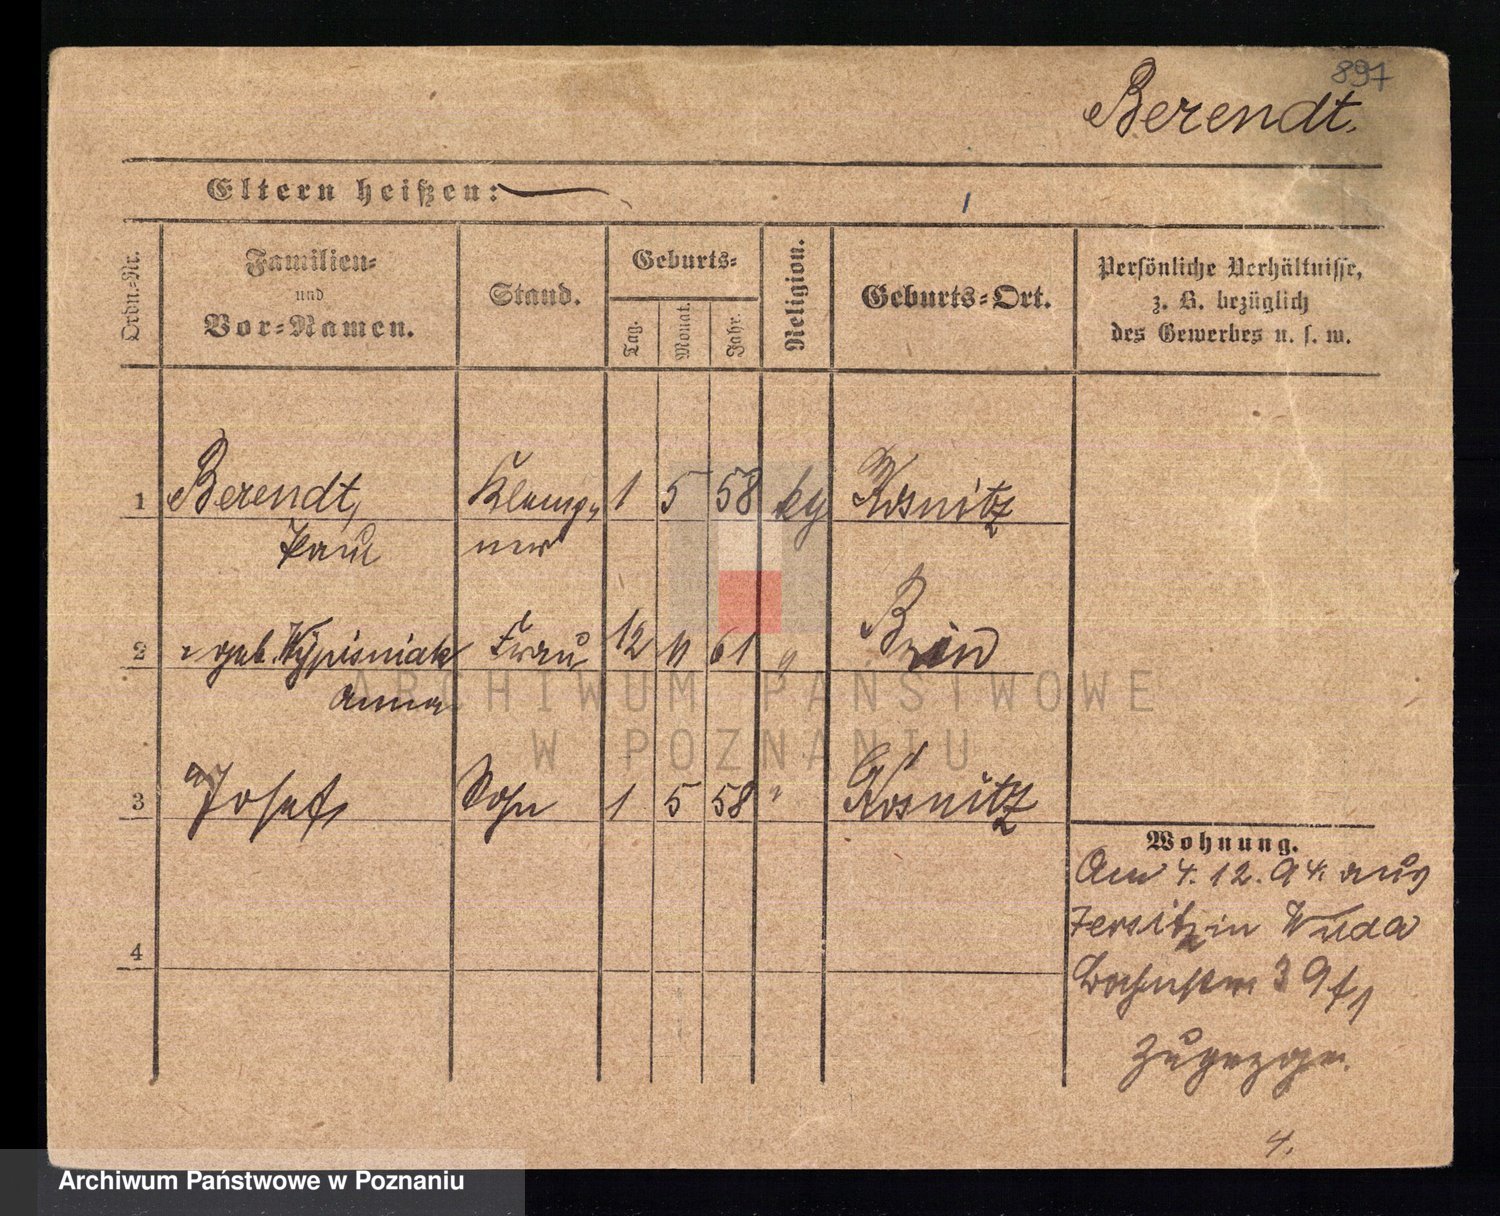 897
Berendt.
Eltern heißen:
Ordn.-Nr.
Familien-
und
Vor-Namen.
Stand.
Geburts-
Tag.
Monat.
Jahr.
Religion.
Geburts-Ort.
Persönliche Verhältnisse,
z. B. bezüglich
des Gewerbes u. s. w.
1 Berendt, Klemp- 1 5 58
Paul ner
2 geb. Wypisniak Frau 12 11 61
Anna
3 Josef Sohn 1 5 58 "
4
Wohnung.
Am 4. 12. 94 aus
Jersitz in Wilda
39
zugezogen.
4.
ARCHIWUM PAŃSTWOWE
W POZNANIU
Archiwum Państwowe w Poznaniu